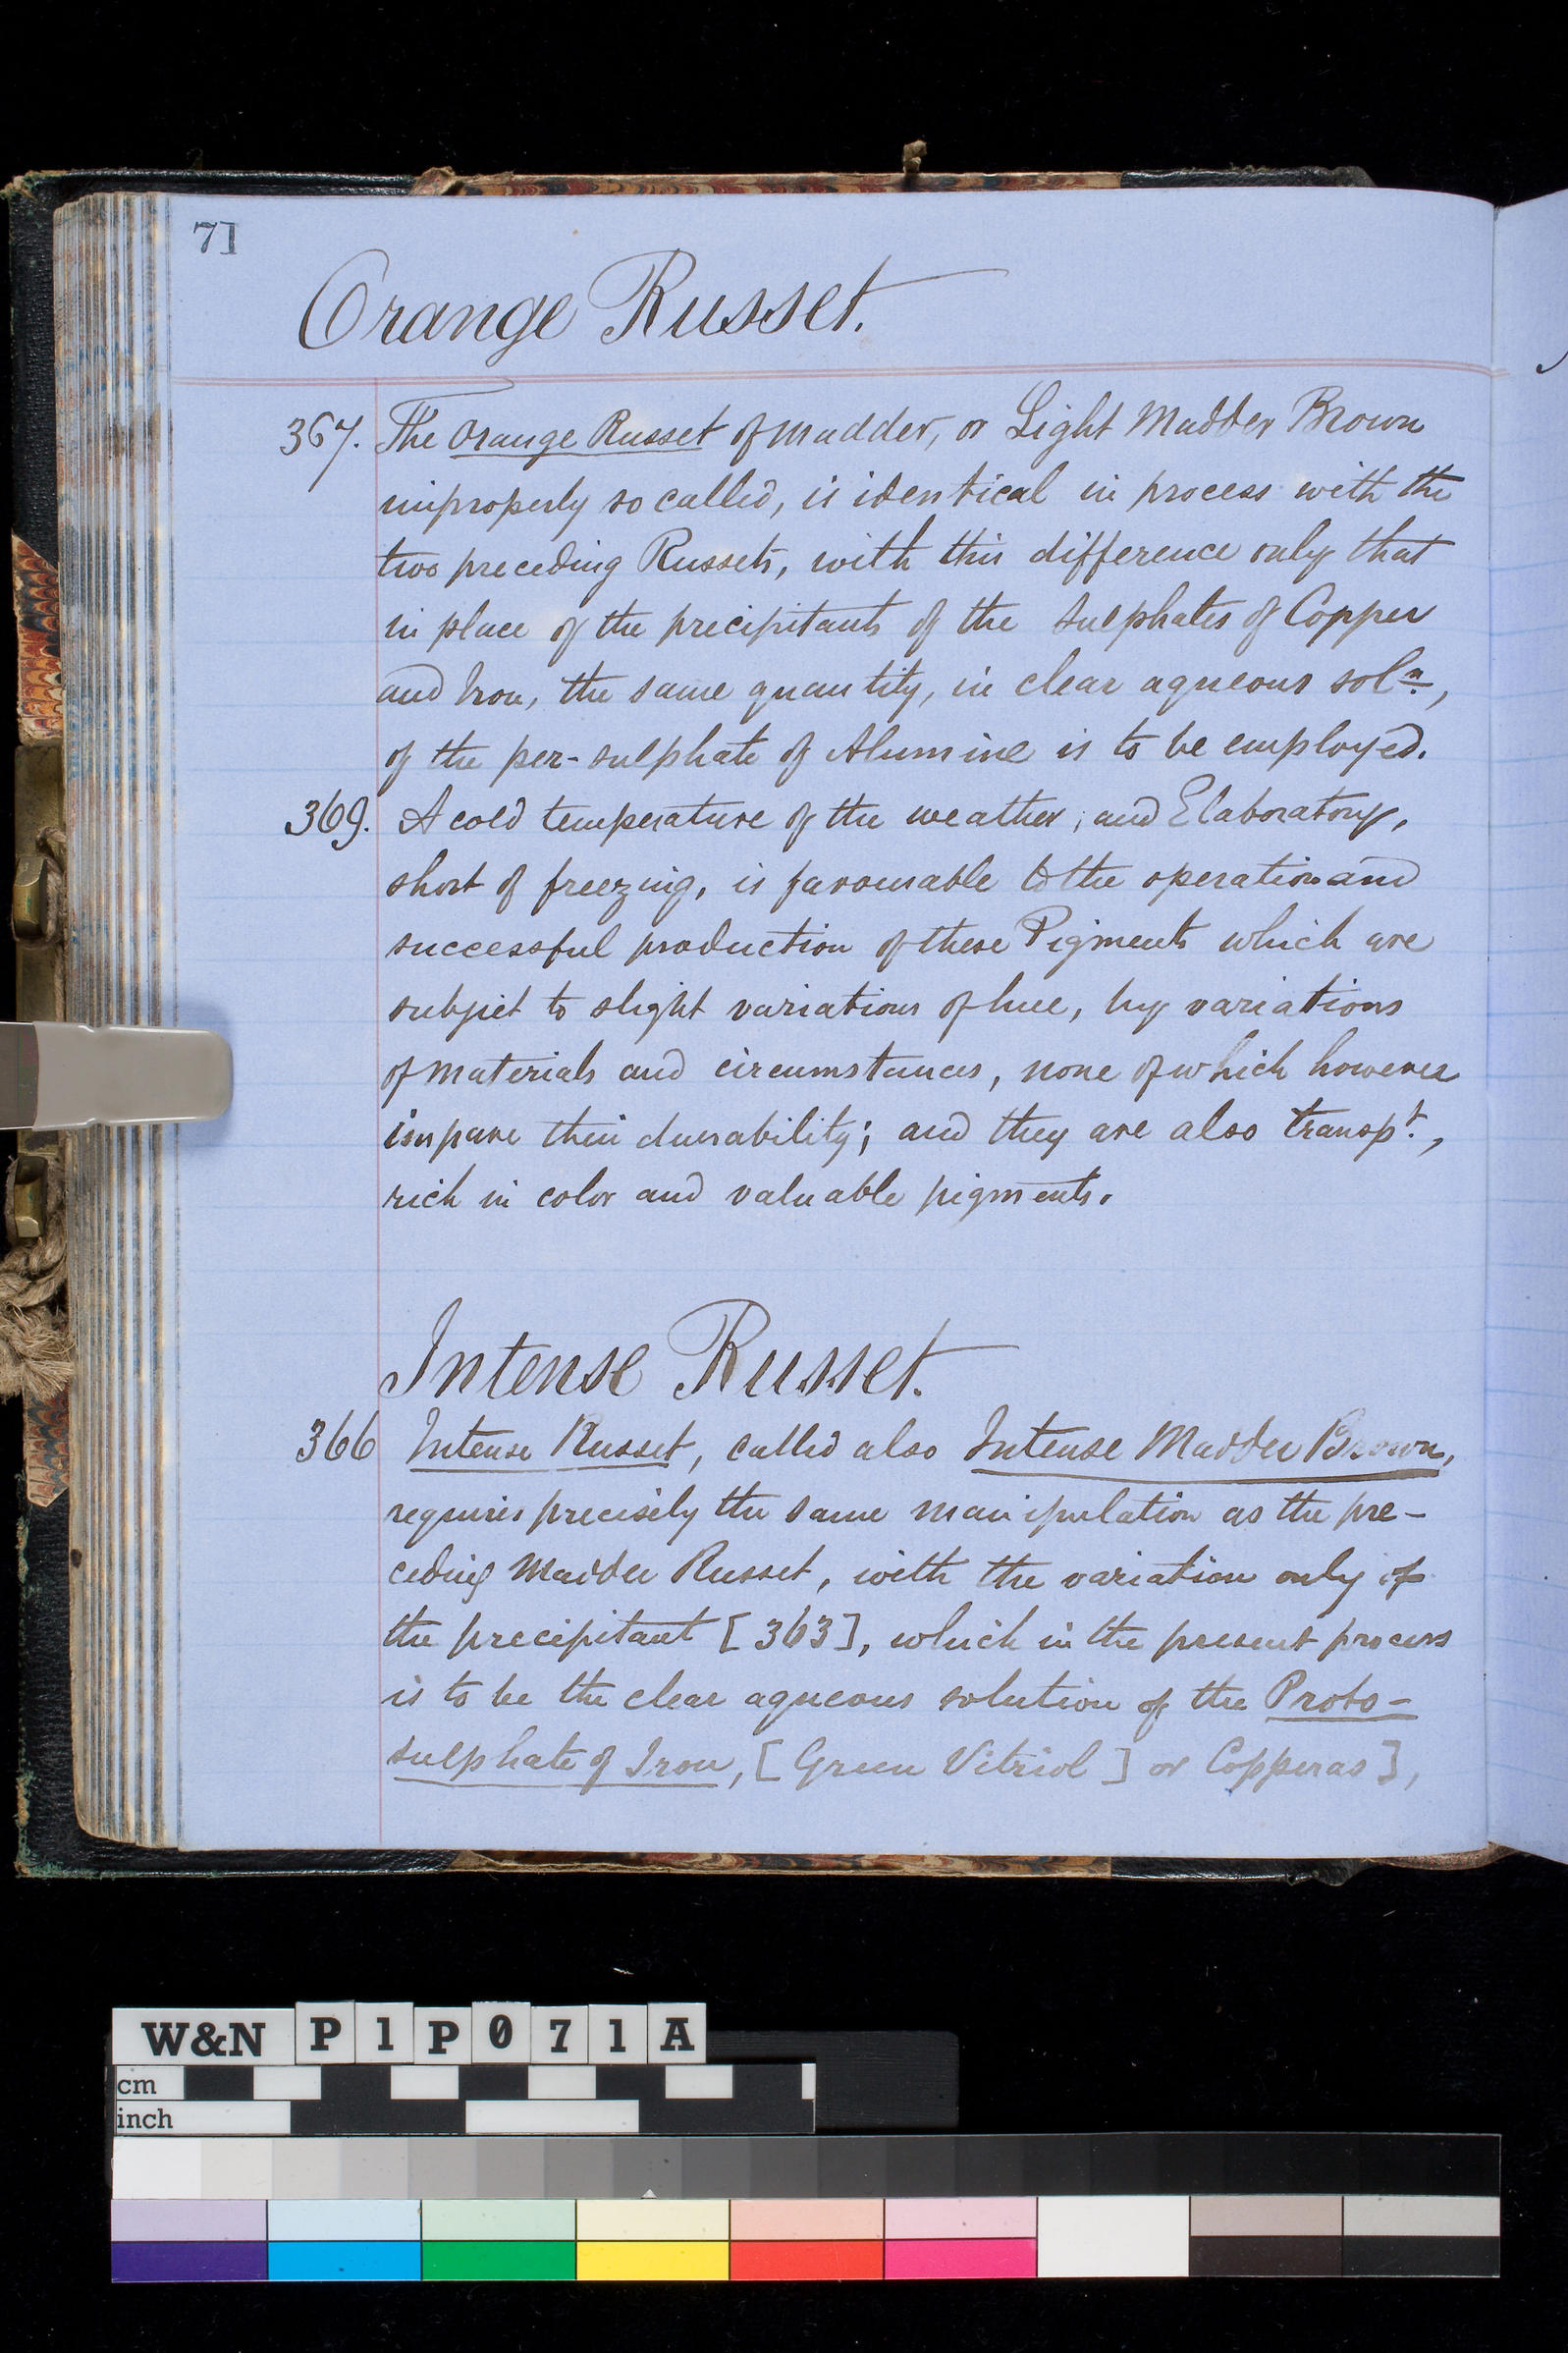 71
Orange Russet.
367. The Orange Russet of madder, or Light Madder Brown
improperly so called, is identical in process with the
two preceding Russets, with this difference only that
in place of the precipitants of the Sulphates of Copper
and Iron, the same quantity, in clear aqueous solⁿ.,
of the per-sulphate of Alumine is to be employed.
369. A cold temperature of the weather, and Elaboratory,
short of freezing, is favourable to the operation and
successful production of these Pigments which are
subject to slight variations of hue, by variations
of materials and circumstances, none of which however
impare their durability; and they are also transpᵗ.,
rich in color and valuable pigments.
Intense Russet.
366 Intense Russet, called also Intense Madder Brown,
requires precisely the same manipulation as the pre-
ceding Madder Russet, with the variation only of
the precipitant [363], which in the present process
is to be the clear aqueous solution of the Proto-
sulphate of Iron, [Green Vitriol] or Copperas],
W&N P1P071A
cm
inch